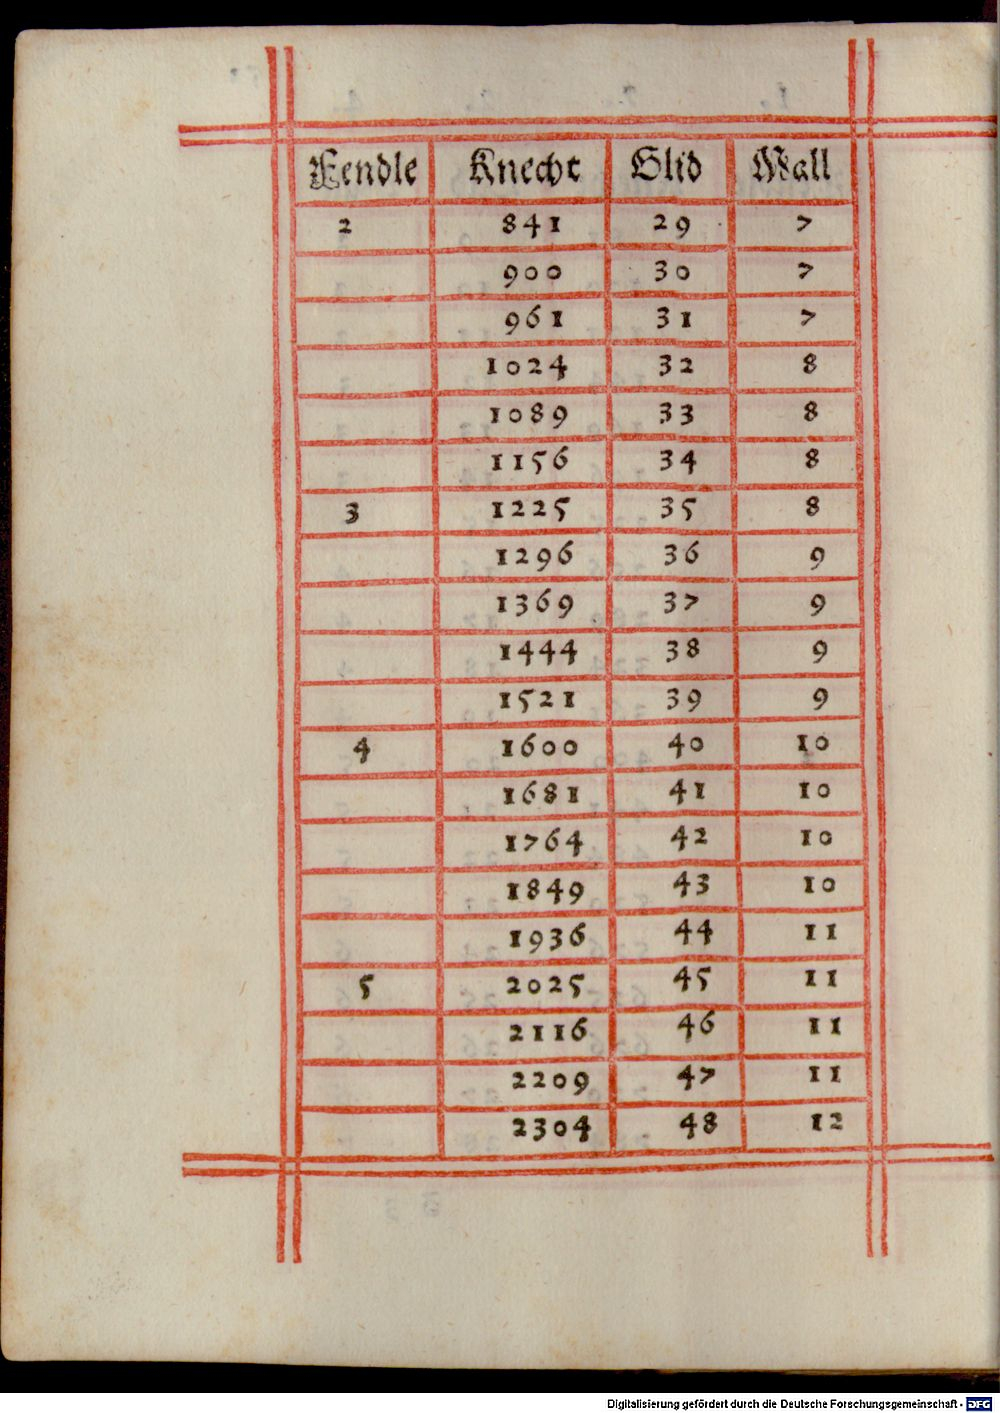 Fendle Knecht Glid Wall
2 841 29 7
900 30 7
961 31 7
1024 32 8
1089 33 8
1156 34 8
3 1225 35 8
1296 36 9
1369 37 9
1444 38 9
1521 39 9
4 1600 40 10
1681 41 10
1764 42 10
1849 43 10
1936 44 11
5 2025 45 11
2116 46 11
2209 47 11
2304 48 12
Digitalisierung gefördert durch die Deutsche Forschungsgemeinschaft - DFG